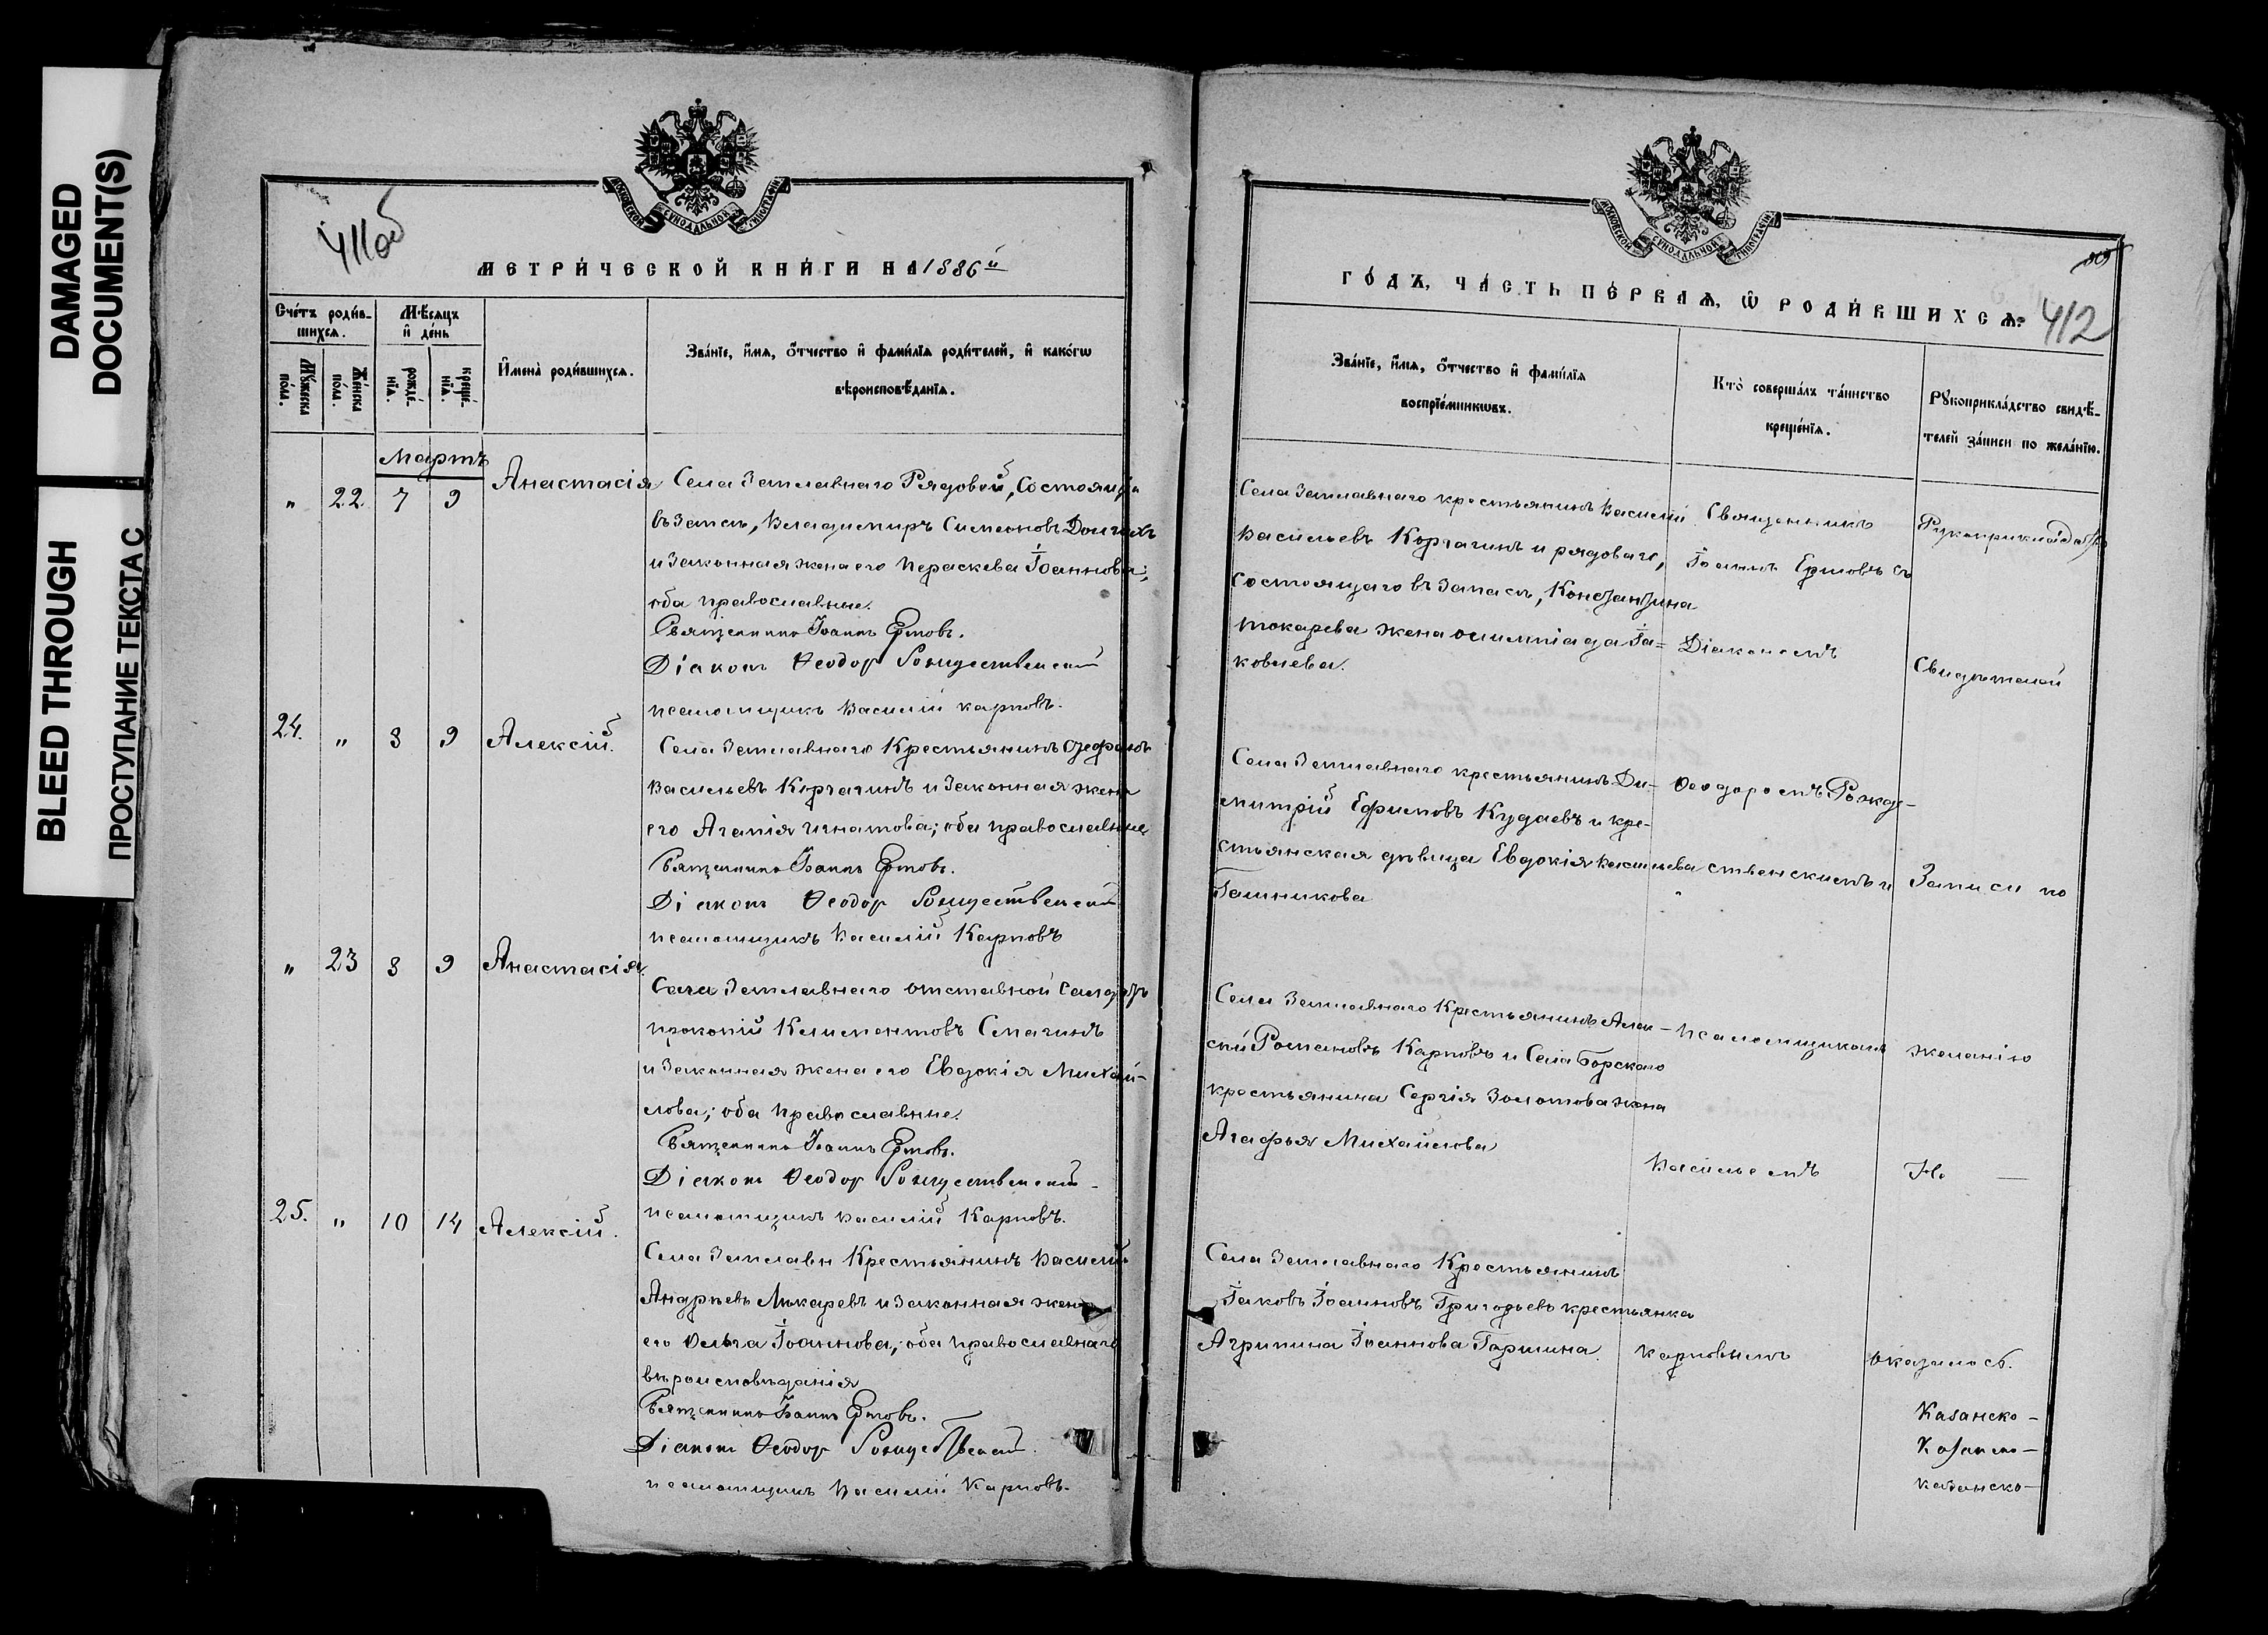 DAMAGED
DOCUMENT(S)
BLEED THROUGH
ПРОСТУПАНИЕ ТЕКСТА С
411об
МОСКОВСКОЙ СУНОДАЛЬНОЙ ТИПОГРАФІИ
МЕТРИ́ЧЕСКОЙ КНИ́ГИ НА 1886й
Сче́тъ роди́в-
шихся.
Мѣ́сяцъ
и҆ де́нь
Мꙋ́жеска
по́ла.
Же́нска
по́ла.
рожде́-
нїѧ.
креще́-
нїѧ.
И҆мена̀ роди́вшихсѧ.
Зва́нїе, и҆́мѧ, ѻ҆́тчество и҆ фами́лїѧ роди́телей, и҆ како́гѡ
вѣроисповѣ́данїѧ.
Мартъ
" 22 7 9 Анастасія
Села Заплавнаго Рядовой, Состоящій
въ Запасѣ, Владимиръ Симеоновъ Долгихъ
и Законная жена его Параскева Іоаннова;
оба православные.
Священникъ Іоаннъ Ермовъ.
Діаконъ Ѳеодоръ Рождественскій
псаломщикъ Василій Карповъ.
24. " 8 9 Алексій.
Села Заплавнаго Крестьянинъ Стефанъ
Васильевъ Корчагинъ и Законная жена
его Агапія Игнатова; оба православные
Священникъ Іоаннъ Ермовъ.
Діаконъ Ѳеодоръ Рождественскій
псаломщикъ Василій Карповъ
" 23 8 9 Анастасія.
Села Заплавнаго отставной Солдатъ
Прокопій Климентовъ Смагинъ
и Законная жена его Евдокія Михай-
лова; оба Православные.
Священникъ Іоаннъ Ермовъ.
Діаконъ Ѳеодоръ Рождественскій
псаломщикъ Василій Карповъ.
25. " 10 14 Алексій.
Села Заплавн Крестьянинъ Василій
Андреевъ Макаревъ и Законная жена
его Ольга Іоаннова; оба Православнаго
вѣроисповѣданія
Священникъ Іоаннъ Ермовъ.
Діаконъ Ѳеодоръ Рождественскій.
псаломщикъ Василій Карповъ.
МОСКОВСКОЙ СУНОДАЛЬНОЙ ТИПОГРАФІИ
ГО́ДЪ, ЧА́СТЬ ПЕ́РВАЯ, Ѡ҆ РОДИ́ВШИХСЯ.
412
Зва́нїе, и҆́мѧ, ѻ҆́тчество и҆ фами́лїѧ
воспрїе́мникѡвъ.
Кто̀ соверша́лъ та́инство
креще́нїѧ.
Рꙋкоприкла́дство свидѣ́-
телей за́писи по жела́нїю.
Села Заплавнаго крестьянинъ Василій
Васильевъ Корчагинъ и рядоваго,
Состоящаго въ Запасѣ, Константина
Токарева жена Олимпіада Іа=
ковлева.
Священникъ
Іоаннъ Ермовъ съ
Діакономъ
Рукоприкладства
Свидѣтелей
Села Заплавнаго крестьянинъ Ди-
митрій Ефимовъ Кудаевъ и кре-
стьянская дѣвица Евдокія Васильева
Галникова
Ѳеодоромъ Рожде-
ственскимъ и
Записи по
Села Заплавнаго Крестьянинъ Алек-
сѣй Романовъ Карповъ и Села Борскаго
крестьянина Сергія Золотова жена
Агафья Михайлова
псаломщикомъ
желанію
Васильемъ
Не —
Села Заплавнаго Крестьянинъ
Іаковъ Іоанновъ Григорьевъ крестьянка
Агрипина Іоаннова Горшина.
Карповымъ
оказалось.
Казанско-
Казанско-
Казанско-